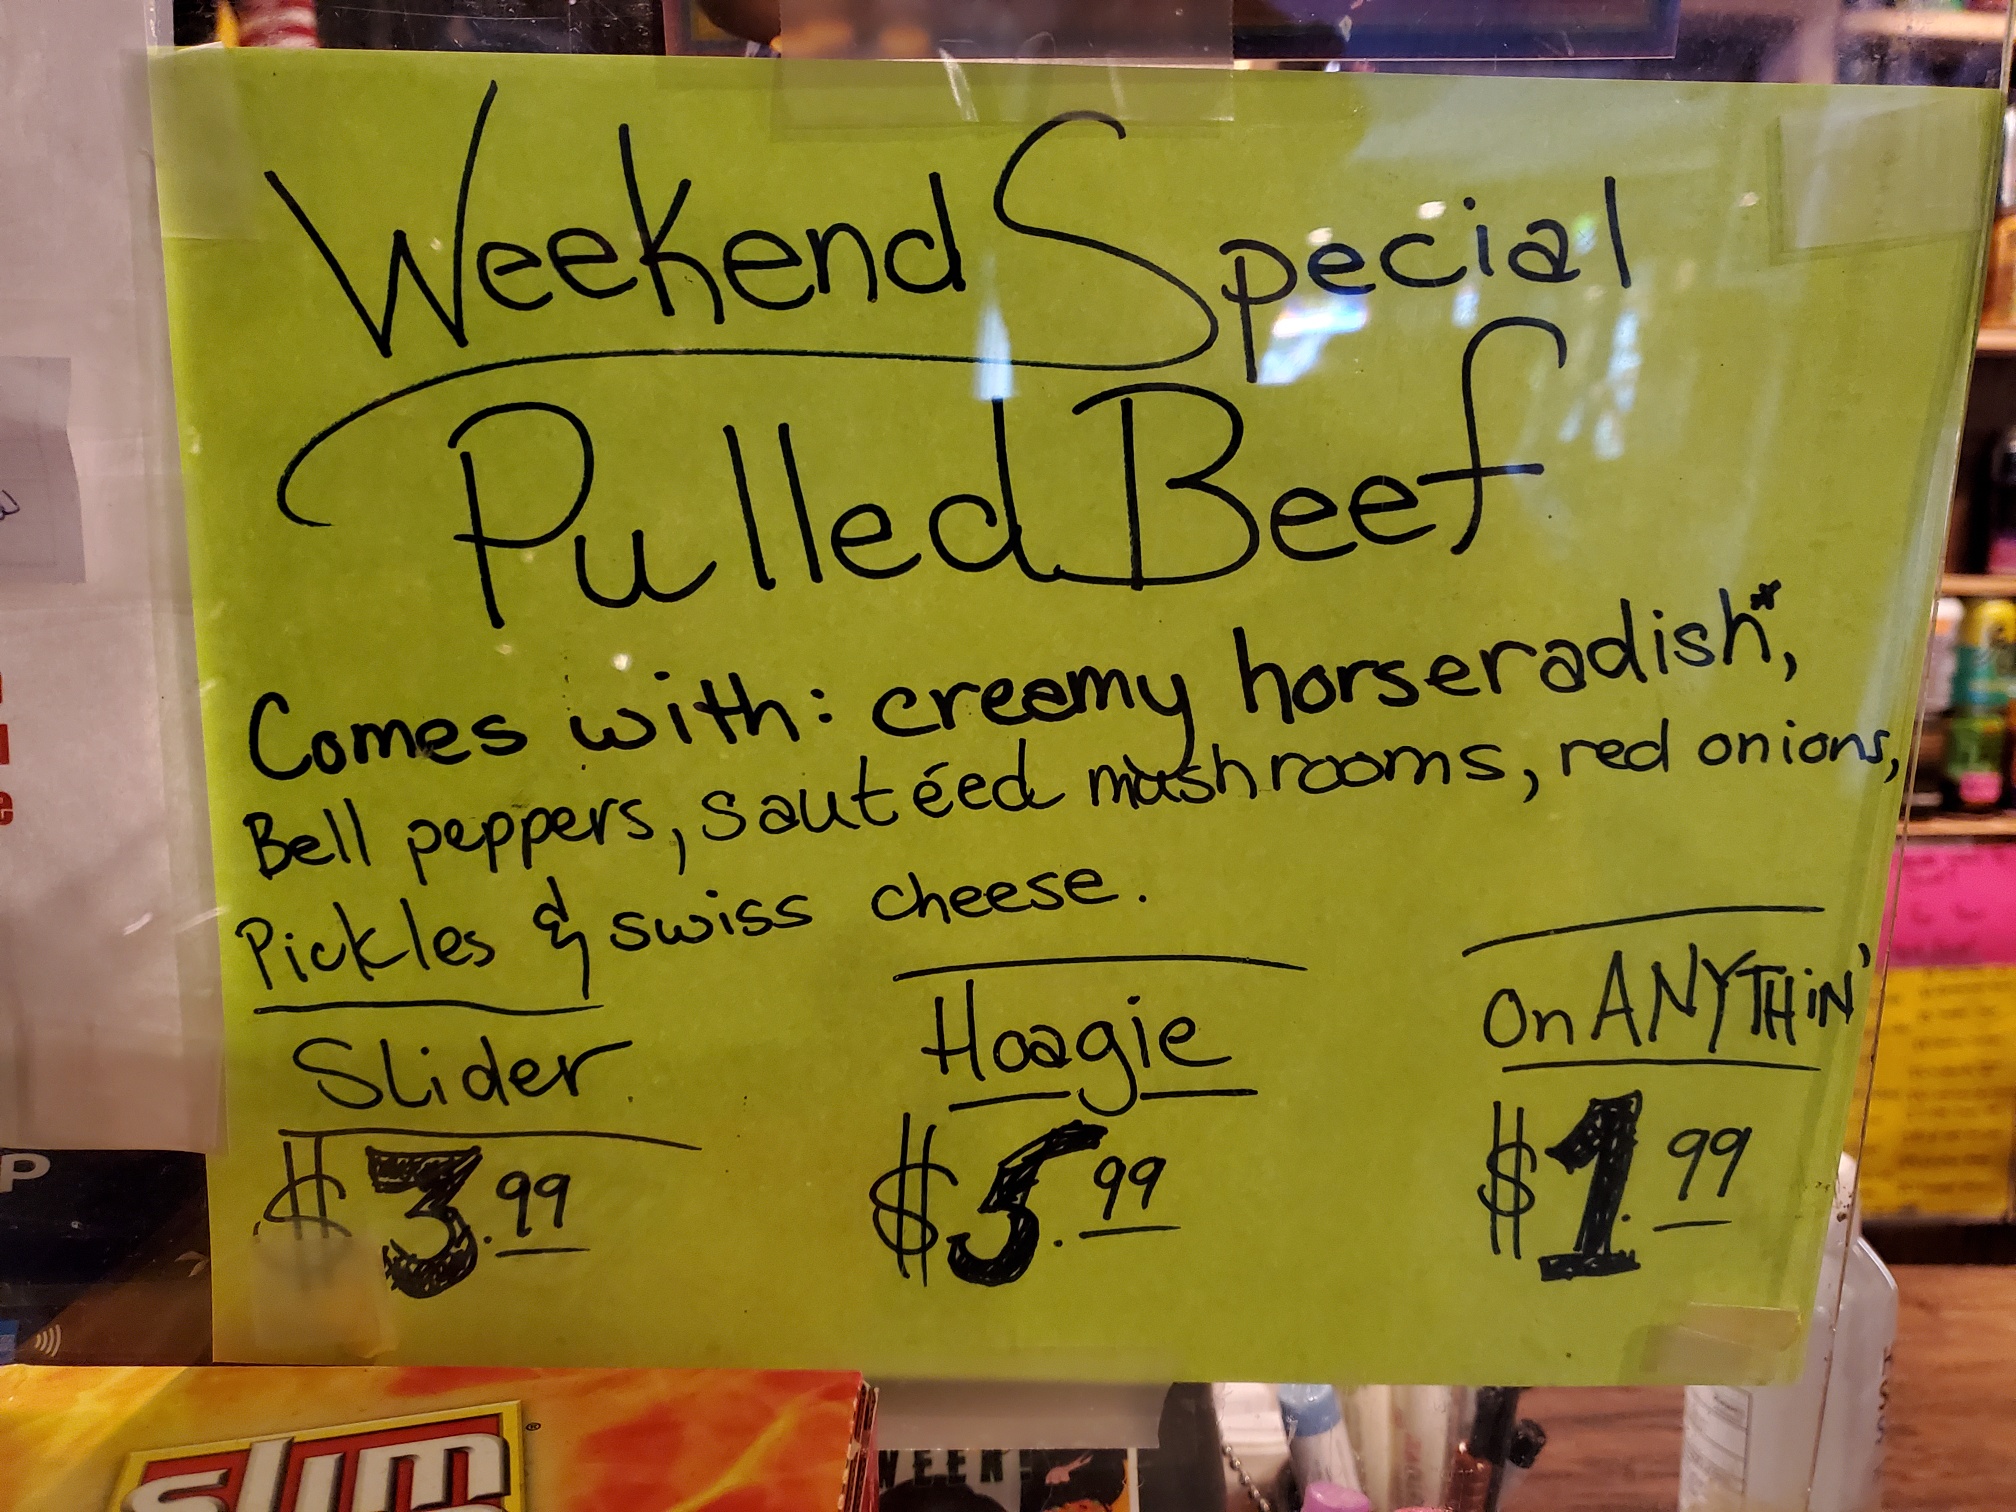 Weekend Special
Pulled Beef
Comes with: creamy horseradish*,
Bell peppers, sautéed mushrooms, red onions,
Pickles & swiss cheese.
Slider
Hoagie
On ANYTHiN'
$3.99
$5.99
$1.99
P
slim
WEEK!